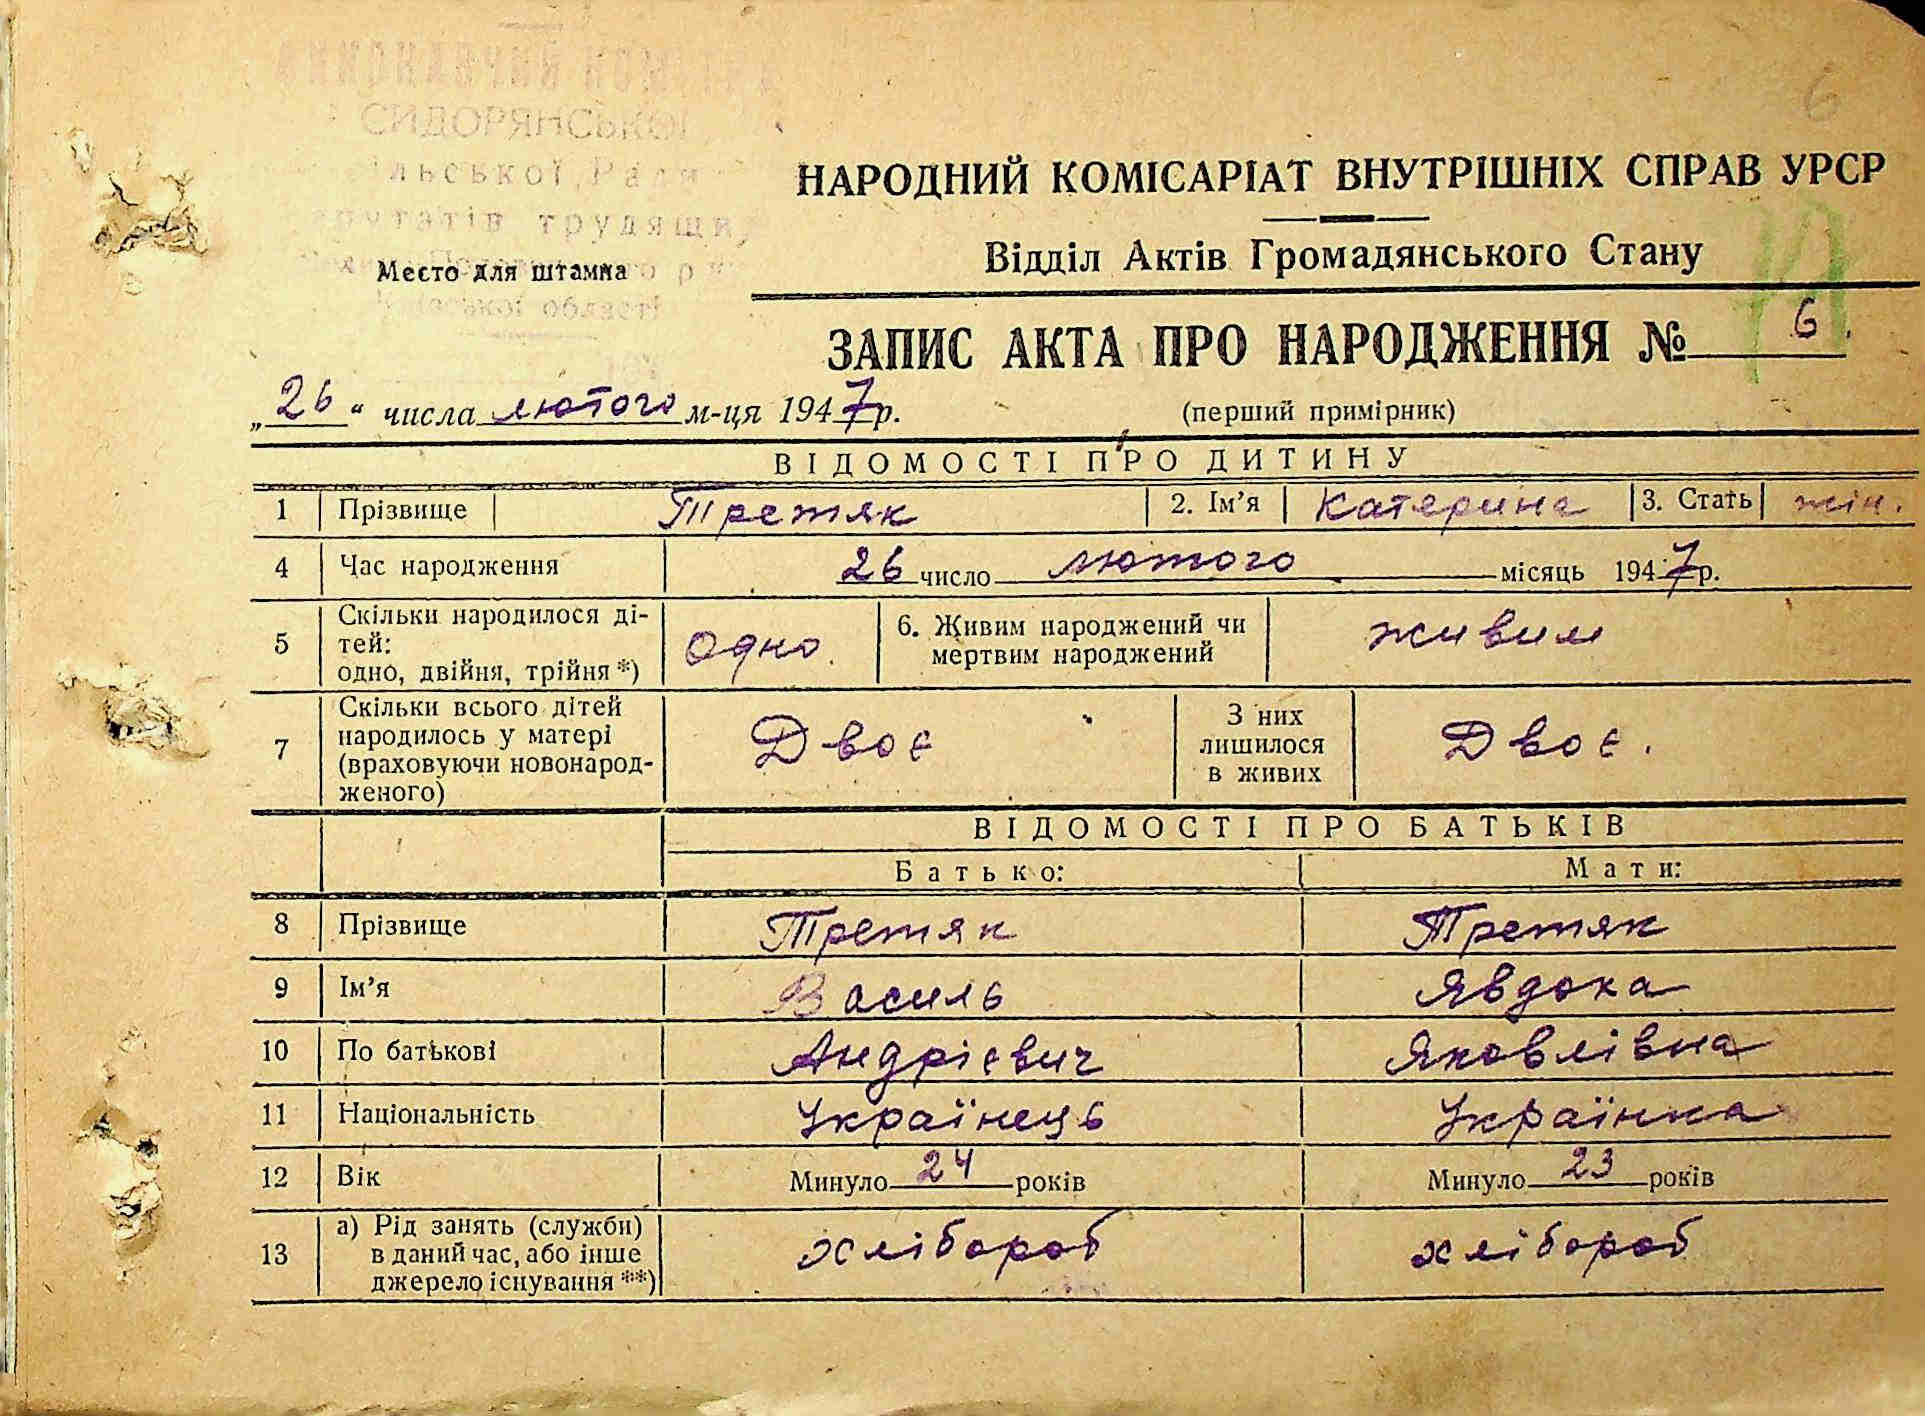 6
СИДОРЯНСЬКОЇ
Ради
трудящих
області
Место для штампа
НАРОДНИЙ КОМІСАРІАТ ВНУТРІШНІХ СПРАВ УРСР
Відділ Актів Громадянського Стану
ЗАПИС АКТА ПРО НАРОДЖЕННЯ № 6.
„26“ числа лютого м-ця 1947р.
(перший примірник)
ВІДОМОСТІ ПРО ДИТИНУ
1 Прізвище Третяк 2. Ім’я Катерина 3. Стать жін.
4 Час народження 26 число лютого місяць 1947р.
5 Скільки народилося ді-
тей:
одно, двійня, трійня *) Одно. 6. Живим народжений чи
мертвим народжений живим
7 Скільки всього дітей
народилось у матері
(враховуючи новонарод-
женого) Двоє З них
лишилося
в живих Двоє.
ВІДОМОСТІ ПРО БАТЬКІВ
Батько: Мати:
8 Прізвище Третяк Третяк
9 Ім’я Василь Явдока
10 По батькові Андрієвич Яковлівна
11 Національність Українець Українка
12 Вік Минуло 24 років Минуло 23 років
13 а) Рід занять (служби)
в даний час, або інше
джерело існування **) хлібороб хлібороб